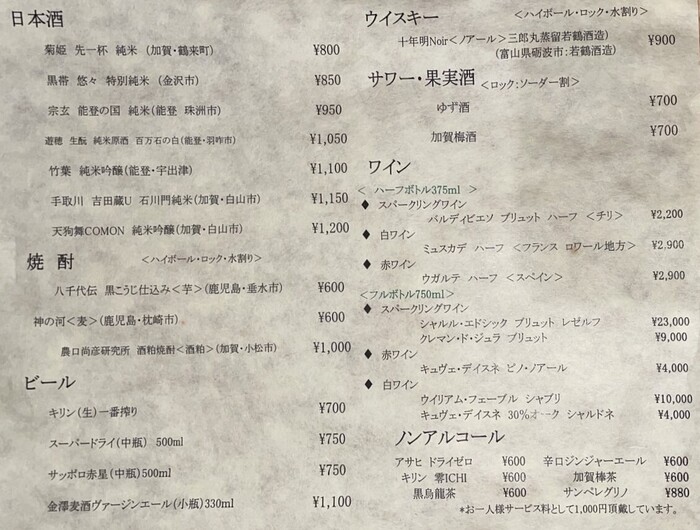 日本酒
菊姫 先一杯 純米 (加賀・鶴来町) ¥800
黒帯 悠々 特別純米 (金沢市) ¥850
宗玄 能登の国 純米(能登 珠洲市) ¥950
遊穂 生酛 純米原酒 百万石の白(能登・羽咋市) ¥1,050
竹葉 純米吟醸(能登・宇出津) ¥1,100
手取川 吉田蔵U 石川門純米(加賀・白山市) ¥1,150
天狗舞COMON 純米吟醸(加賀・白山市) ¥1,200
焼 酎 <ハイボール・ロック・水割り>
八千代伝 黒こうじ仕込み<芋>(鹿児島・垂水市) ¥600
神の河<麦>(鹿児島・枕崎市) ¥600
農口尚彦研究所 酒粕焼酎<酒粕>(加賀・小松市) ¥1,000
ビール
キリン(生)一番搾り ¥700
スーパードライ(中瓶) 500ml ¥750
サッポロ赤星(中瓶)500ml ¥750
金澤麦酒ヴァージンエール(小瓶)330ml ¥1,100
ウイスキー <ハイボール・ロック・水割り>
十年明Noir<ノアール>三郎丸蒸留若鶴酒造) ¥900
(富山県砺波市:若鶴酒造)
サワー・果実酒 <ロック:ソーダー割>
ゆず酒 ¥700
加賀梅酒 ¥700
ワイン
< ハーフボトル375ml >
♦ スパークリングワイン
バルディビエソ ブリュット ハーフ <チリ> ¥2,200
♦ 白ワイン
ミュスカデ ハーフ <フランス ロワール地方> ¥2,900
♦ 赤ワイン
ウガルテ ハーフ <スペイン> ¥2,900
<フルボトル750ml>
♦ スパークリングワイン
シャルル・エドシック ブリュット レゼルフ ¥23,000
クレマン・ド・ジュラ ブリュット ¥9,000
♦ 赤ワイン
キュヴェ・デイスネ ピノ・ノアール ¥4,000
♦ 白ワイン
ウイリアム・フェーブル シャブリ ¥10,000
キュヴェ・デイスネ 30%オーク シャルドネ ¥4,000
ノンアルコール
アサヒ ドライゼロ ¥600 辛口ジンジャーエール ¥600
キリン 零ICHI ¥600 加賀棒茶 ¥600
黒烏龍茶 ¥600 サンペレグリノ ¥880
*お一人様サービス料として1,000円頂戴しています。